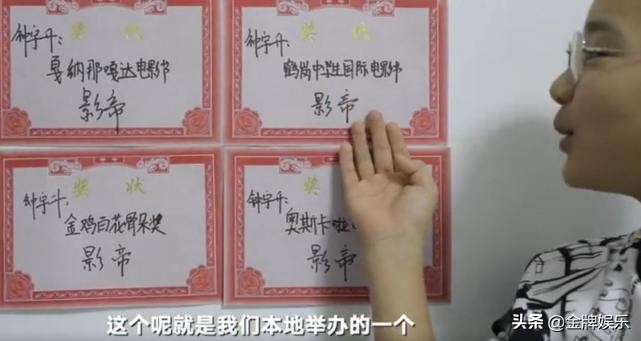 奖状
钟宇升：
戛纳那嘎达电影节
影帝
奖状
钟宇升：
鹤岗中学生国际电影节
影帝
奖状
钟宇升：
金鸡百花骨朵奖
影帝
奖
钟宇升：
奥斯卡啦
影帝
这个呢就是我们本地举办的一个
头条@金牌娱乐